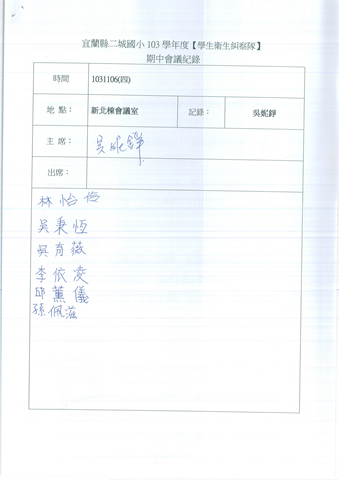 宜蘭縣二城國小 103 學年度【學生衛生糾察隊】
期中會議紀錄
時間 1031106(四)
地 點： 新北棟會議室 記錄： 吳妮錚
主 席： 吳妮錚
出席：
林怡
吳秉恆
吳育薇
李依凌
邱薰儀
孫佩滋